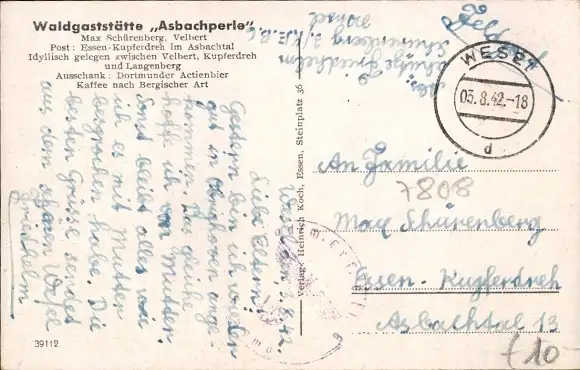 Waldgaststätte „Asbachperle"
Max Schürenberg, Velbert
Post: Essen-Kupferdreh im Asbachtal
Idyllisch gelegen zwischen Velbert, Kupferdreh
und Langenberg
Ausschank: Dortmunder Actienbier
Kaffee nach Bergischer Art
Feldpost
Schütze Friedhelm
Schürenberg
Wesel
WESEL
03.8.42.-18
d
8.42.
Liebe Eltern!
Gestern bin ich wieder
gut in Oberhausen ange-
kommen. Das gleiche
hoffe ich von Mutter.
Sonst bleibt alles wie
ich es mit Mutter
besprochen habe. Die
besten Grüsse sendet
aus dem schönen Wesel
Friedhelm
Verlag: Heinrich Koch, Essen, Steinplatz 36
An Familie
7808
Max Schürenberg
Essen-Kupferdreh
Asbachtal 13
39112
10-